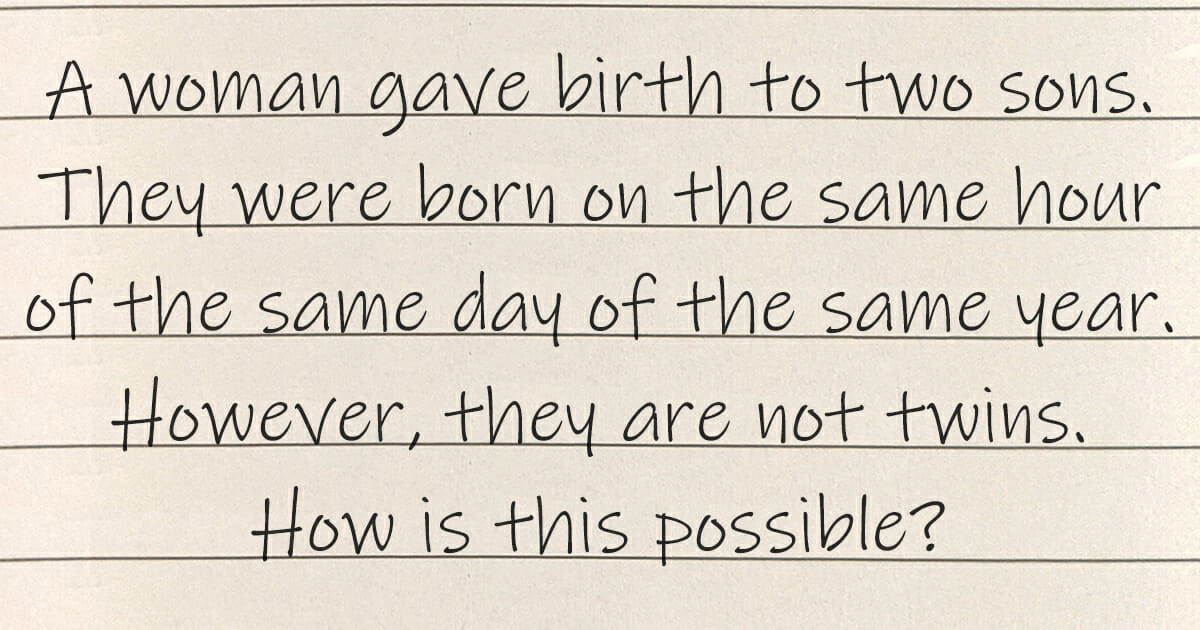 A woman gave birth to two sons.
They were born on the same hour
of the same day of the same year.
However, they are not twins.
How is this possible?